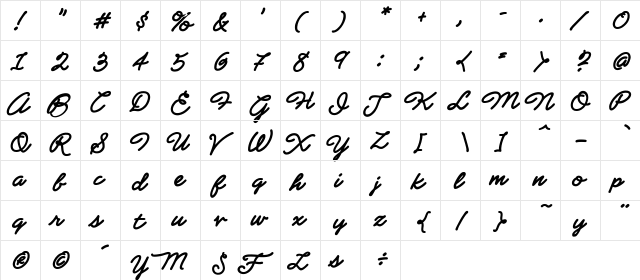 ! " # $ % & ' ( ) * + , - . / 0
1 2 3 4 5 6 7 8 9 : ; < = > ? @
A B C D E F G H I J K L M N O P
Q R S T U V W X Y Z [ \ ] ^ _ `
a b c d e f g h i j k l m n o p
q r s t u v w x y z { / } ~ y ¨
@ © ¯ Y M S F L s ÷